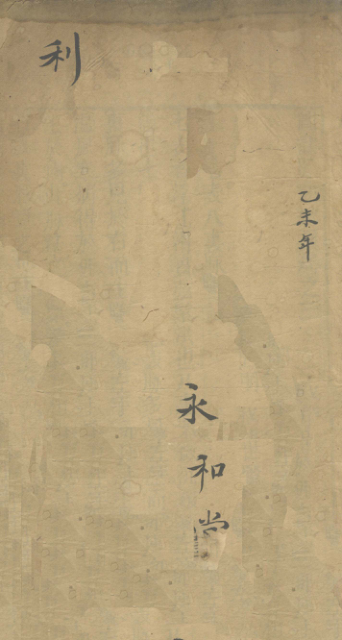 乙未年
永和尚
利